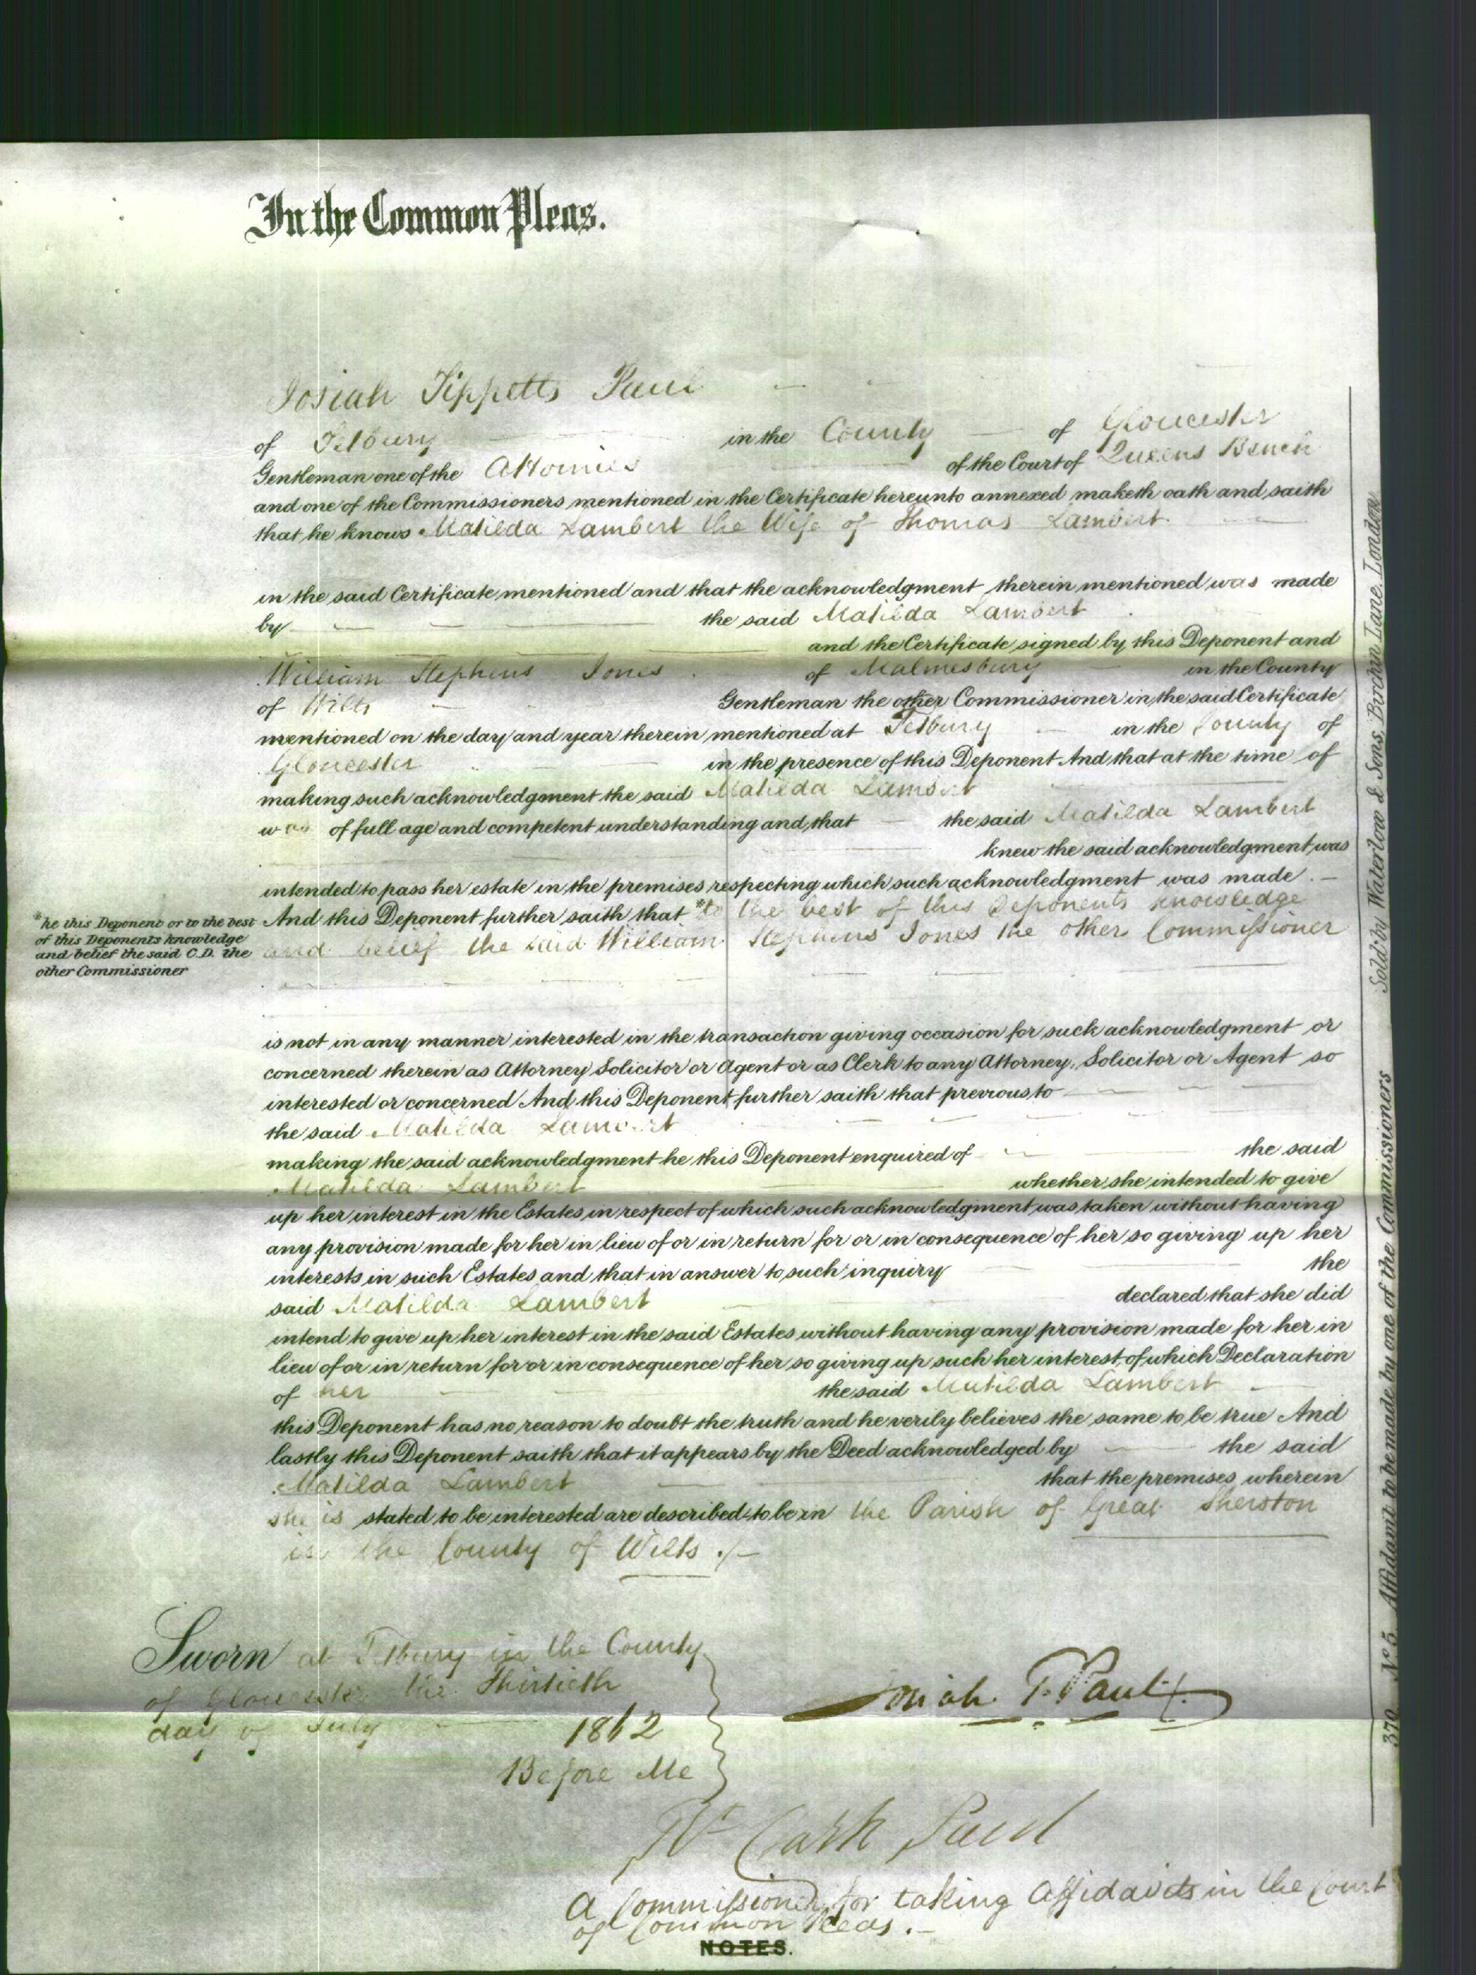 In the Common Pleas.
Josiah Tippetts Paul
of Tetbury in the County of Gloucester
Gentleman one of the Attornies of the Court of Queens Bench
and one of the Commissioners mentioned in the Certificate hereunto annexed maketh oath and saith
that he knows Matilda Lambert the Wife of Thomas Lambert
in the said Certificate mentioned and that the acknowledgment therein mentioned was made
by the said Matilda Lambert
and the Certificate signed by this Deponent and
William Stephens Jones of Malmesbury in the County
of Wilts Gentleman the other Commissioner in the said Certificate
mentioned on the day and year therein mentioned at Tetbury in the County of
Gloucester in the presence of this Deponent And that at the time of
making such acknowledgment the said Matilda Lambert
was of full age and competent understanding and that the said Matilda Lambert
knew the said acknowledgment was
intended to pass her estate in the premises respecting which such acknowledgment was made.
And this Deponent further saith that * to the best of this Deponents knowledge
and belief the said William Stephens Jones the other Commissioner
*he this Deponent or to the best
of this Deponents knowledge
and belief the said C.D. the
other Commissioner
is not in any manner interested in the transaction giving occasion for such acknowledgment or
concerned therein as Attorney Solicitor or Agent or as Clerk to any Attorney, Solicitor or Agent so
interested or concerned And this Deponent further saith that previous to
the said Matilda Lambert
making the said acknowledgment he this Deponent enquired of the said
Matilda Lambert whether she intended to give
up her interest in the Estates in respect of which such acknowledgment was taken without having
any provision made for her in lieu of or in return for or in consequence of her so giving up her
interests in such Estates and that in answer to such inquiry the
said Matilda Lambert declared that she did
intend to give up her interest in the said Estates without having any provision made for her in
lieu of or in return for or in consequence of her so giving up such her interest, of which Declaration
of her the said Matilda Lambert
this Deponent has no reason to doubt the truth and he verily believes the same to be true And
lastly this Deponent saith that it appears by the Deed acknowledged by the said
Matilda Lambert that the premises wherein
she is stated to be interested are described to be in the Parish of Great Sherston
in the County of Wilts
Sworn at Tetbury in the County
of Gloucester the Thirtieth
day of July 1862
Before Me
Josiah T. Paul
Wm Clark Paul
A Commissioner for taking Affidavits in the Court
of Common Pleas.
NOTES.
370 No. 5 Affidavit to be made by one of the Commissioners Sold by Waterlow & Sons, Birchin Lane, London